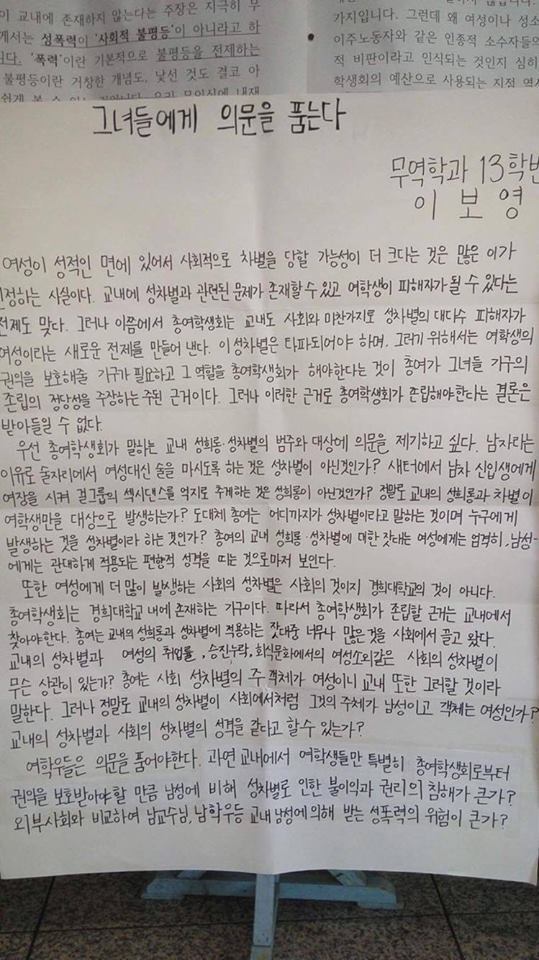 이 교내에 존재하지 않는다는 주장은 지극히 무
께서는 성폭력이 '사회적 불평등'이 아니라고 하
니다. '폭력'이란 기본적으로 불평등을 전제하는
불평등이란 거창한 개념도, 낯선 것도 결코 아
가지입니다. 그런데 왜 여성이나 성소
이주노동자와 같은 인종적 소수자들의
적 비판이라고 인식되는 것인지 심히
학생회의 예산으로 사용되는 지점 역시
그녀들에게 의문을 품는다
무역학과 13학번
이 보 영
여성이 성적인 면에 있어서 사회적으로 차별을 당할 가능성이 더 크다는 것은 많은 이가
정하는 사실이다. 교내에 성차별과 관련된 문제가 존재할 수 있고 여학생이 피해자가 될 수 있다는
전제도 맞다. 그러나 이쯤에서 총여학생회는 교내도 사회와 마찬가지로 성차별의 대다수 피해자가
여성이라는 새로운 전제를 만들어 낸다. 이 성차별은 타파되어야 하며, 그러기 위해서는 여학생의
권익을 보호해줄 기구가 필요하고 그 역할을 총여학생회가 해야한다는 것이 총여가 그녀들 기구의
존립의 정당성을 주장하는 주된 근거이다. 그러나 이러한 근거로 총여학생회가 존립해야한다는 결론은
받아들일 수 없다.
우선 총여학생회가 말하는 교내 성희롱 성차별의 범주와 대상에 의문을 제기하고 싶다. 남자라는
이유로 술자리에서 여성대신 술을 마시도록 하는 것은 성차별이 아닌것인가? 새터에서 남자 신입생에게
여장을 시켜 걸그룹의 섹시댄스를 억지로 추게하는 것은 성희롱이 아닌것인가? 정말로 교내의 성희롱과 차별이
여학생만을 대상으로 발생하는가? 도대체 총여는 어디까지가 성차별이라고 말하는 것이며 누구에게
발생하는 것을 성차별이라 하는 것인가? 총여의 교내 성희롱·성차별에 대한 잣대는 여성에게는 엄격히, 남성
에게는 관대하게 적용되는 편향적 성격을 띠는 것으로마저 보인다.
또한 여성에게 더 많이 발생하는 사회의 성차별은 사회의 것이지 경희대학교의 것이 아니다.
총여학생회는 경희대학교 내에 존재하는 기구이다. 따라서 총여학생회가 존립할 근거는 교내에서
찾아야한다. 총여는 교내의 성희롱과 성차별에 적용하는 잣대중 너무나 많은것을 사회에서 끌고 왔다.
교내의 성차별과 여성의 취업률, 승진누락, 회식문화에서의 여성소외같은 사회의 성차별이
무슨 상관이 있는가? 총여는 사회 성차별의 주 객체가 여성이니 교내 또한 그러할 것이라
말한다. 그러나 정말로 교내의 성차별이 사회에서처럼 그것의 주체가 남성이고 객체는 여성인가?
교내의 성차별과 사회의 성차별의 성격을 같다고 할수 있는가?
여학우들은 의문을 품어야한다. 과연 교내에서 여학생들만 특별히 총여학생회로부터
권익을 보호받아야할 만큼 남성에 비해 성차별로 인한 불이익과 권리의 침해가 큰가?
외부사회와 비교하여 남교수님, 남학우등 교내 남성에 의해 받는 성폭력의 위험이 큰가?